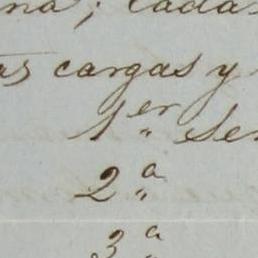 na; cada
as cargas y
1er Se
2a
3a